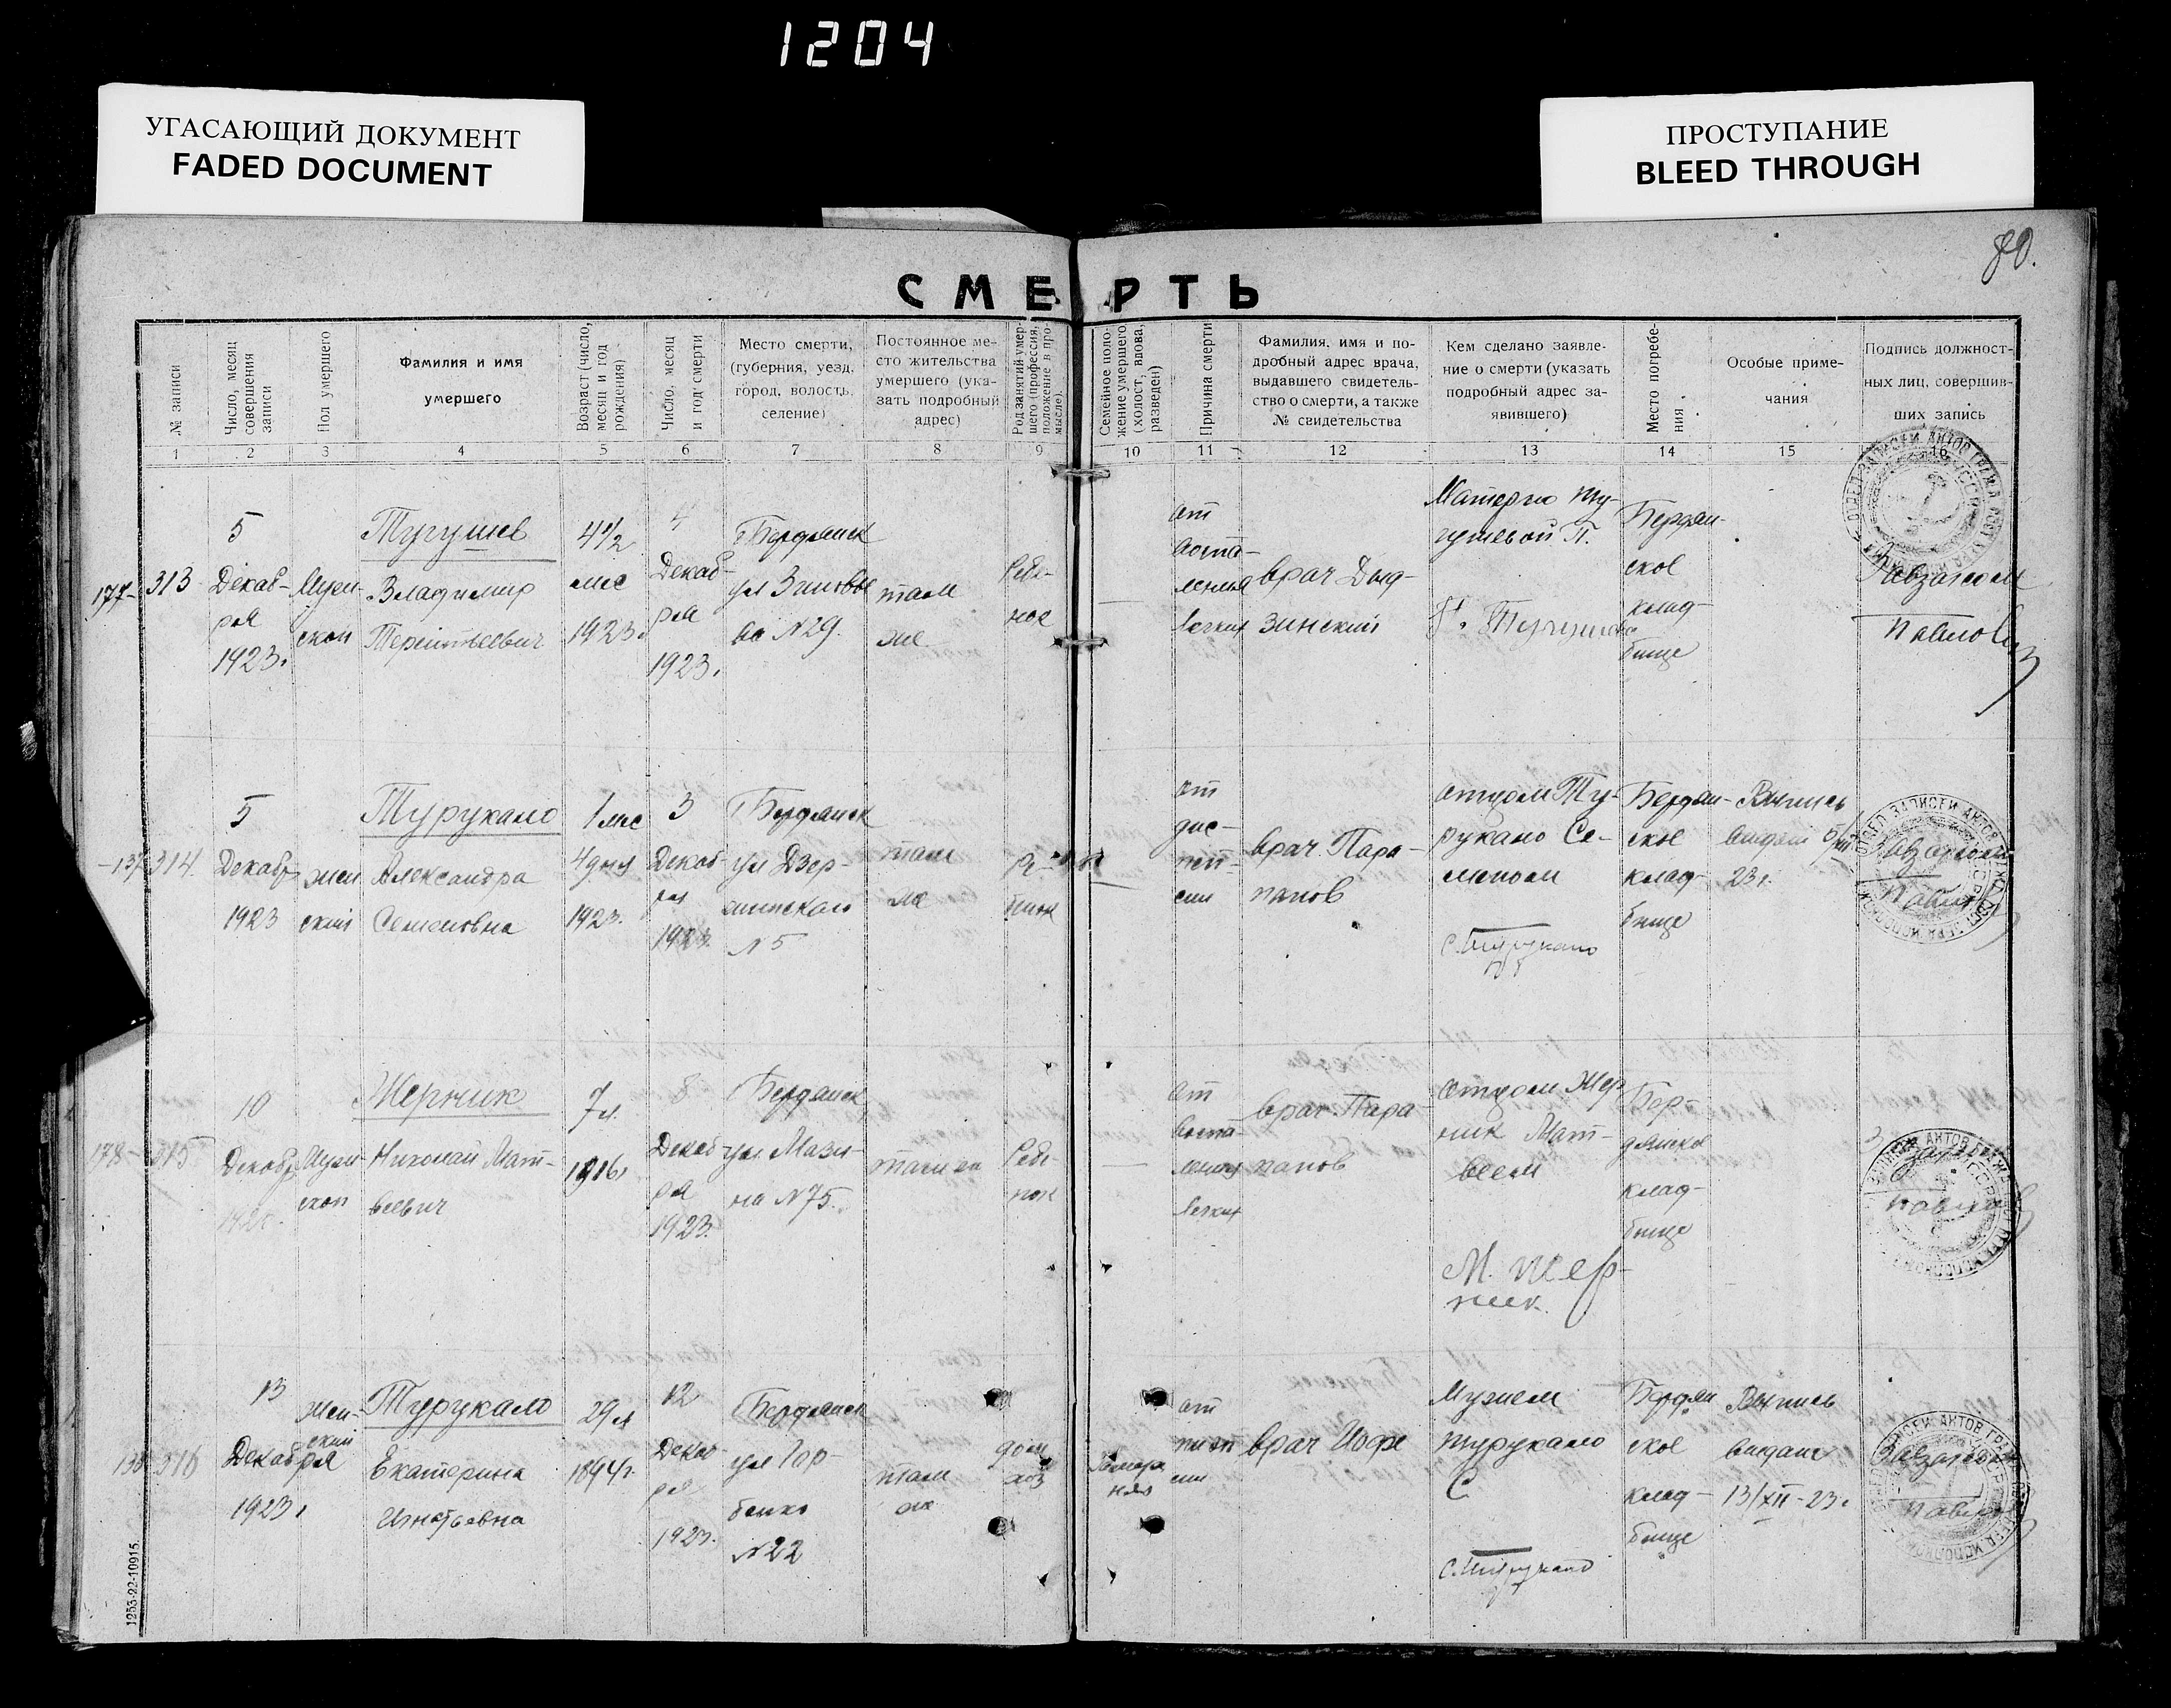 1204
УГАСАЮЩИЙ ДОКУМЕНТ
FADED DOCUMENT
ПРОСТУПАНИЕ
BLEED THROUGH
80.
СМЕРТЬ
№ записи
Число, месяц
совершения
записи
Пол умершего
Фамилия и имя
умершего
Возраст (число,
месяц и год
рождения)
Число, месяц
и год смерти
Место смерти,
(губерния, уезд,
город, волость,
селение)
Постоянное ме-
сто жительства
умершего (ука-
зать подробный
адрес)
Род занятий умер-
шего (профессия,
положение в про-
мысле).
Семейное поло-
жение умершего
(холост, вдова,
разведен)
Причина смерти
Фамилия, имя и по-
дробный адрес врача,
выдавшего свидетель-
ство о смерти, а также
№ свидетельства
Кем сделано заявле-
ние о смерти (указать
подробный адрес за-
явившего)
Место погребе-
ния
Особые приме-
чания
Подпись должност-
ных лиц, совершив-
ших запись
1 2 3 4 5 6 7 8 9 10 11 12 13 14 15 16
177
313
5
Декаб-
ря
1923.
Муж-
ской
Тугушев
Владимир
Терентьевич
4 1/2
мес
1923.
4
Декаб-
ря
1923.
Бердянск
ул
№ 29.
там
же
Ребе-
нок
от
воспа-
ления
легких
врач
зинский
Матерью Ту-
гушевой П.
Бердян-
ское
клад-
бище
Завзагсом
Павлов
137
314.
5
Декабр
1923
жен
ский
Турукало
Александра
Семеновна
1 мес
4 дня
1923.
3
Декаб-
ря
1923.
Бердянск
ул Дзер-
жинского
№ 5
там
же
от
дис-
пеп-
сии
врач Пара-
панов
отцом Ту-
рукало Се-
меном
С. Турукало
Бердян-
ское
клад-
бище
Выпись
выдана 5/XII
23 г.
Завзагсом
Павлов
178
315
10
Декабр
Муж-
ской
Жерник
Николай Мат-
веевич
7 л.
1916 г
8
Декаб-
ря
1923.
Бердянск
ул Мази-
на № 75.
там же
Ребе-
нок
от
воспа-
ления
легких
врач Пара-
панов
отцом Жер
ник Мат-
веем
М. Жер-
ник.
Бер-
дянское
клад-
бище
Павлов
138
316
13
Декабря
1923 г
жен-
ский
Турукало
Екатерина
Игнатьевна
29 л
1894 г.
12
Декаб
ря
1923.
Бердянск
ул Гор-
бенко
№ 22
там
же
дом
хоз
от
пеп
сии
врач Иофе
Мужем
Турукало
С
С. Турукало
Бердян
ское
клад-
бище
Выпись
выдана
13/XII-23 г.
Завзагсом
Павлов
1253-22-10915.